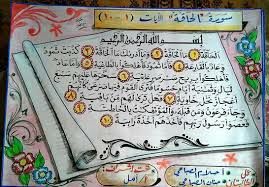 سورة "الحاقة" الآيات (١-١٠)
بسم الله الرحمن الرحيم
الحاقة ١ ما الحاقة ٢ وما أدراك ما الحاقة ٣ كذبت ثمود
وعاد بالقارعة ٤ فأما ثمود فأهلكوا بالطاغية ٥ وأما عاد
فأهلكوا بريح صرصر عاتية ٦ سخرها عليهم سبع
ليال وثمانية أيام حسوما فترى القوم فيها صرعى كأنهم
أعجاز نخل خاوية ٧ فهل ترى لهم من باقية ٨ وجاء
فرعون ومن قبله والمؤتفكات بالخاطئة ٩
فعصوا رسول ربهم فأخذهم أخذة رابية ١٠
تحت إشراف
أ/ أمل